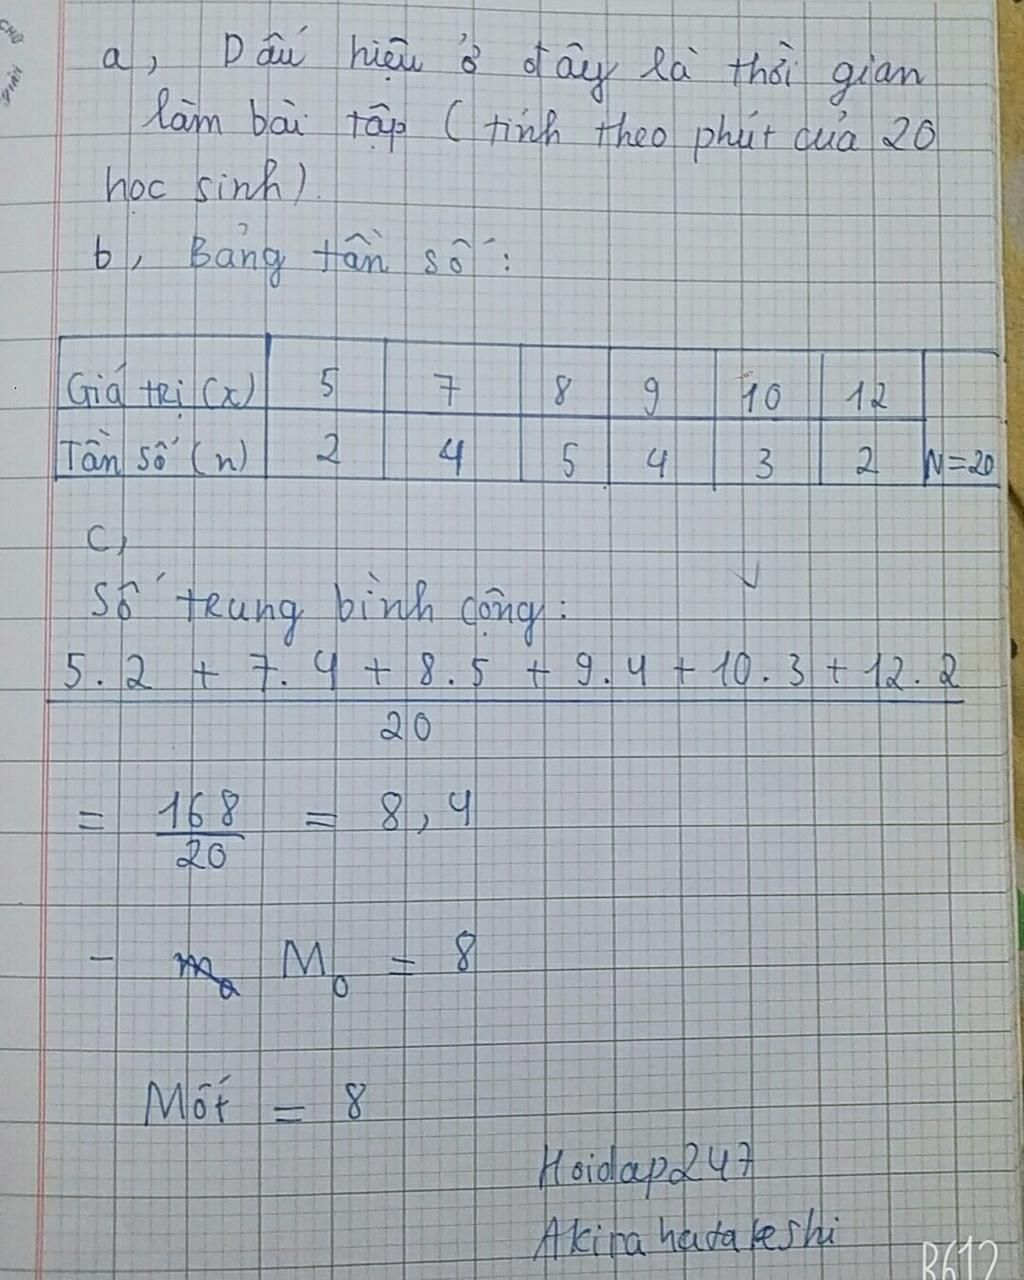 a, Dấu hiệu ở đây là thời gian
làm bài tập ( tính theo phút của 20
học sinh).
b, Bảng tần số:
Giá trị (x) 5 7 8 9 10 12
Tần số (n) 2 4 5 4 3 2 N=20
c,
Số trung bình cộng:
5.2 + 7.4 + 8.5 + 9.4 + 10.3 + 12.2
20
= 168/20 = 8,4
- M₀ = 8
Mốt = 8
Hoidap247
Akira hatakeshi
B612